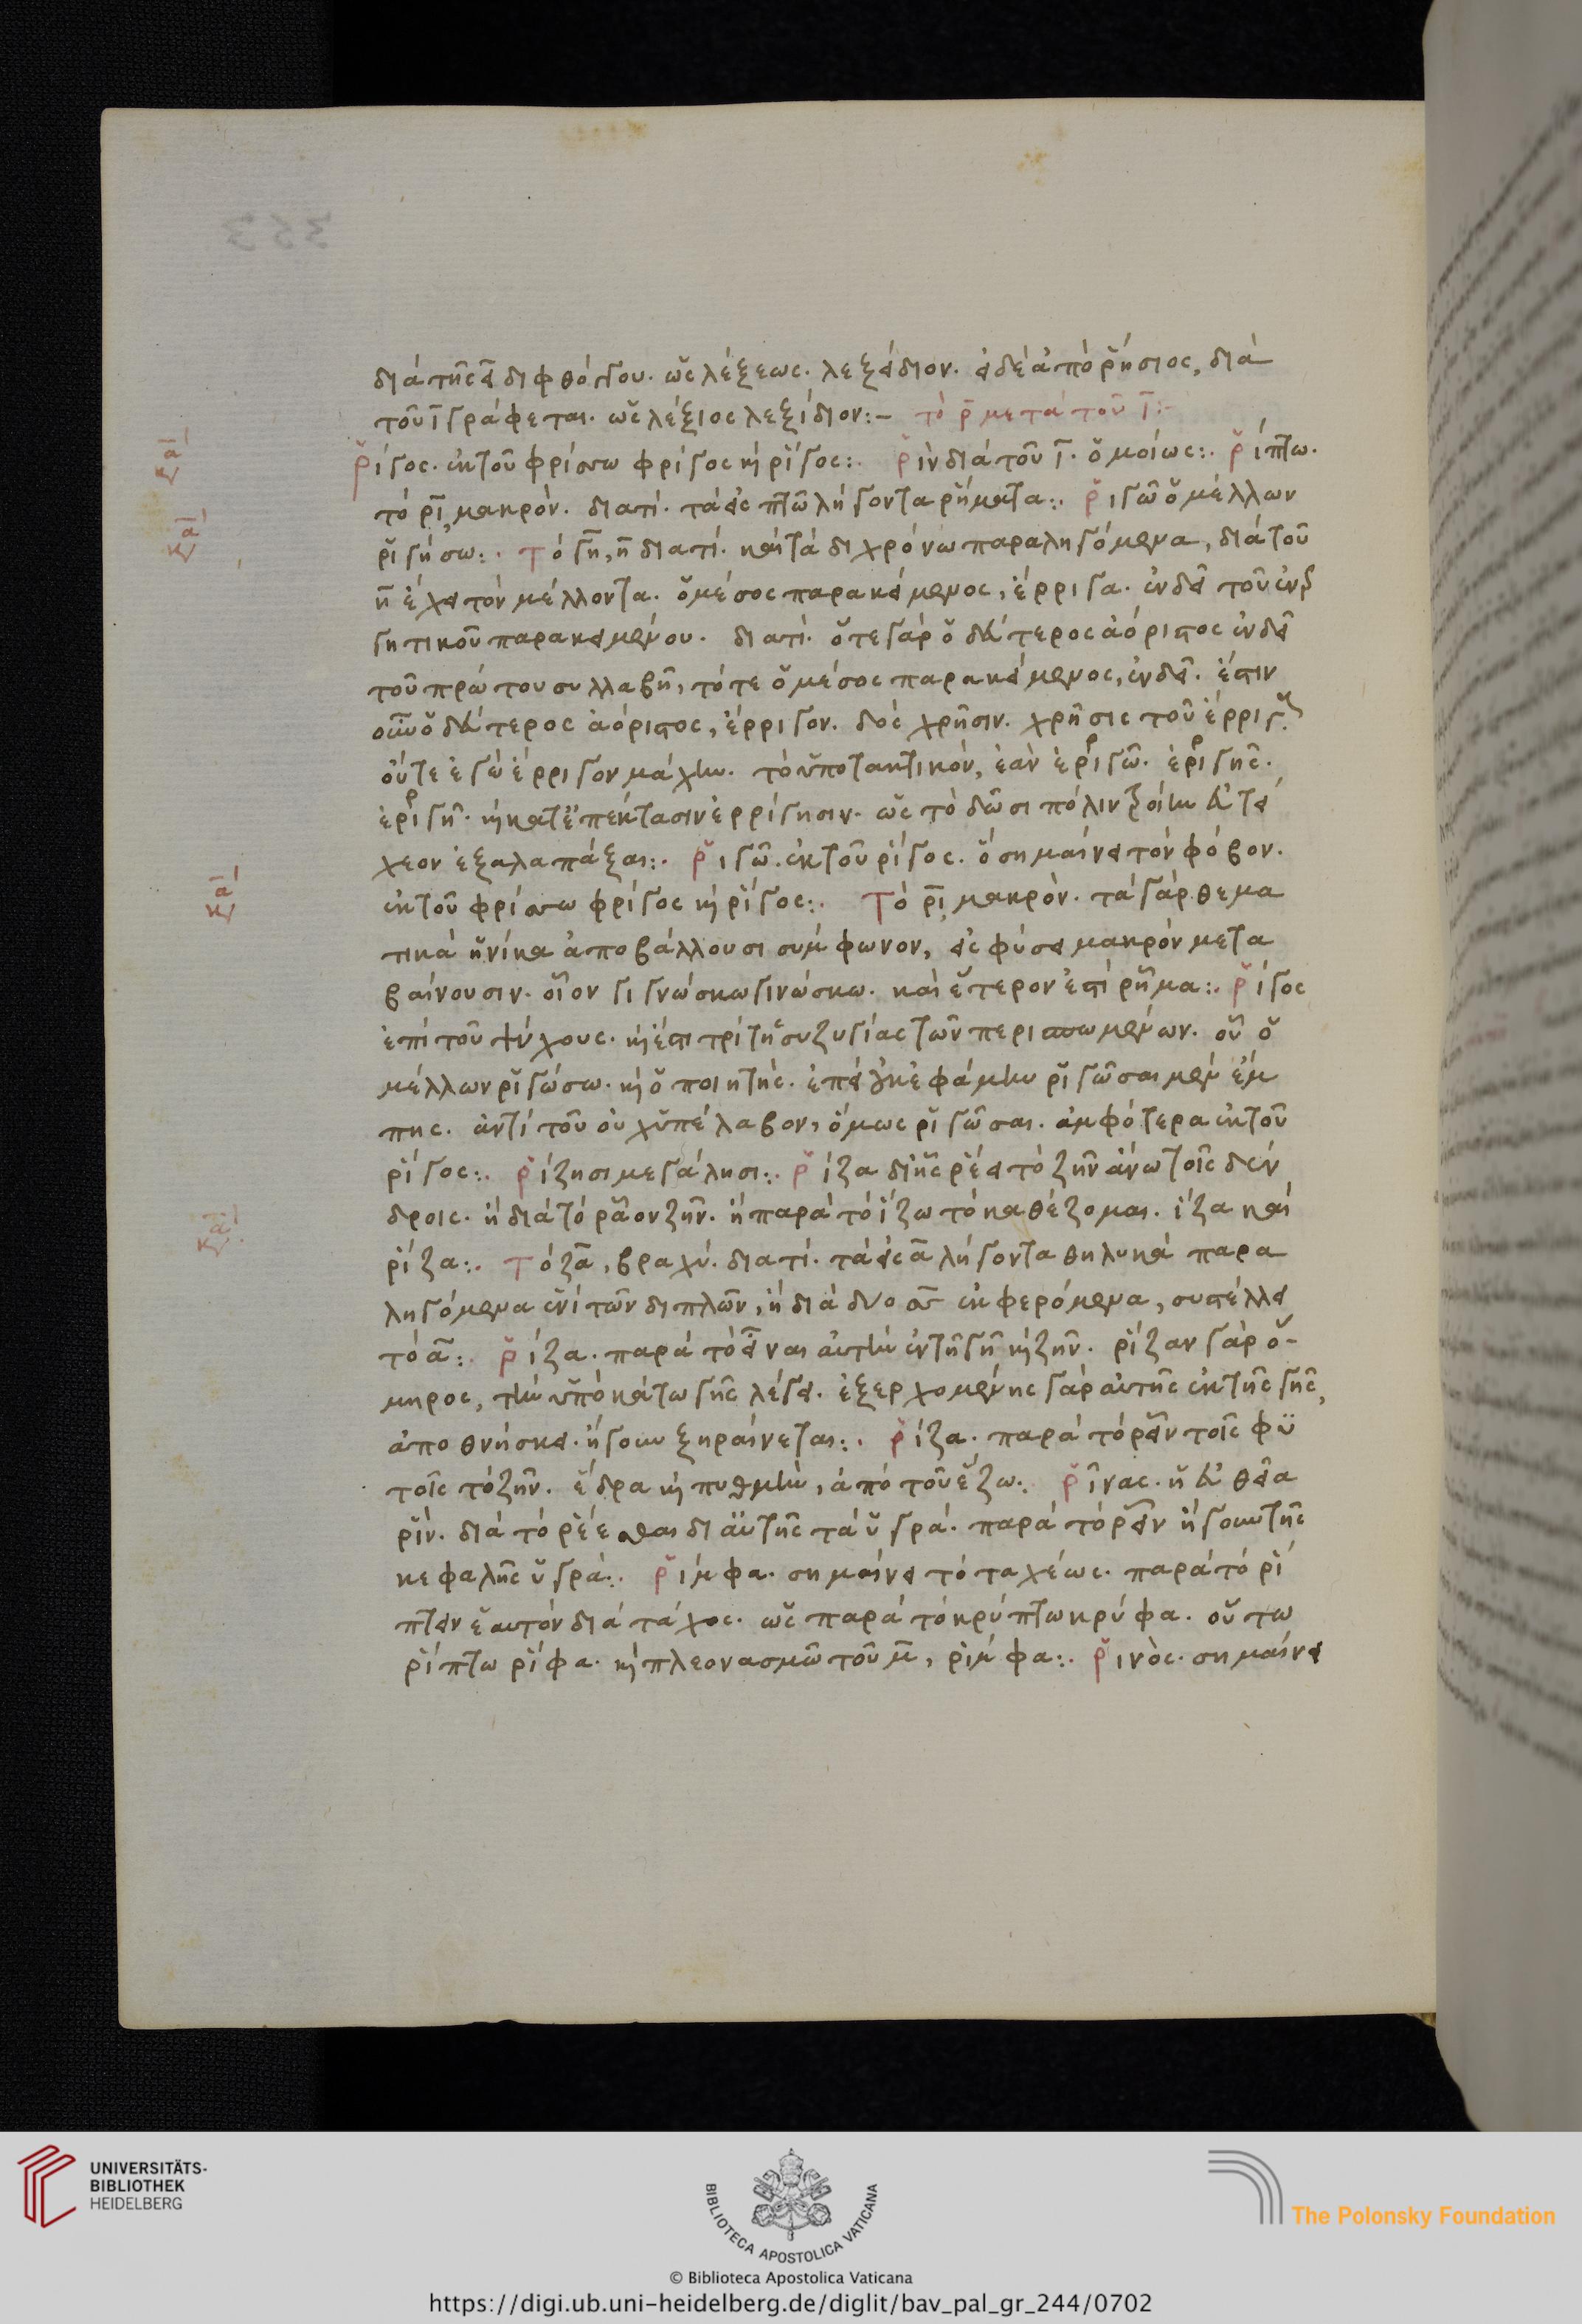 διὰ τῆς ει διφθόγγου. ὡς λέξεως. λεξείδιον. εἰ δὲ ἀπὸ ῥήσιος, διὰ
τοῦ ῑ γράφεται. ὡς λέξιος λεξίδιον:– τὸ ρ̄ μετὰ τοῦ ῑ:–
ῥίγος. ἐκ τοῦ φρίσσω φρίγος κ(αὶ) ῥίγος:. ῥὶν διὰ τοῦ ῑ. ὁμοίως:. ῥίπτω.
τὸ ρῑ μακρόν. διατί. τὰ εἰς πτω λήγοντα ῥήματα:. ῥιγῶ ὁ μέλλων
ῥιγήσω:. τὸ γη, η διατί. καὶ τὰ διχρόνω παραληγόμενα, διὰ τοῦ
η ἔχει τὸν μέλλοντα. ὁ μέσος παρακείμενος, ἔρριγα. ἐνδεῖ τοῦ ἐνερ
γητικοῦ παρακειμένου. διατί. ὅτε γὰρ ὁ δεύτερος ἀόριστος ἐνδεῖ
τοῦ πρώτου συλλαβῆ, τότε ὁ μέσος παρακείμενος, ἐνδεῖ. ἔστιν
οὖν ὁ δεύτερος ἀόριστος, ἔρριγον. δὸς χρῆσιν. χρῆσις τοῦ ἔρριγον
οὔτε ἐγὼν ἔρριγον μάχην. τὸ ὑποτακτικόν, ἐὰν ἐρρίγω. ἐρρίγης.
ἐρρίγη. κ(αὶ) κατ' ἐπέκτασιν ἐρρίγησιν. ὡς τὸ δῶσι πόλιν τροίην εὐτεί
χεον ἐξαλαπάξαι:. ῥιγῶ. ἐκ τοῦ ῥίγος. ὃ σημαίνει τὸν φόβον.
ἐκ τοῦ φρίσσω φρίγος κ(αὶ) ῥίγος:. Τὸ ρῑ μακρόν. τὰ γὰρ θεμα
τικὰ ἡνίκα ἀποβάλλουσι σύμφωνον, εἰς φύσει μακρὸν μετα
βαίνουσιν. οἷον γιγνώσκω γινώσκω. καὶ ἕτερον ἐστὶ ῥῆμα:. ῥίγος
ἐπὶ τοῦ ψύχους. κ(αὶ) ἔστι τρίτης συζυγίας τῶν περισπωμένων. οὗ ὁ
μέλλων ῥιγώσω. κ(αὶ) ὁ ποιητής. ἐπεὶ οὐκ ἐφάμην ῥιγῶσαι μὲν ἔμ
πης. ἀντὶ τοῦ οὐχ ὑπέλαβον, ὅμως ῥιγῶσαι. ἀμφότερα ἐκ τοῦ
ῥίγος:. ῥίζησι μεγάλησι:. ῥίζα δι' ἧς ῥέει τὸ ζῆν ἄνω τοῖς δέν
δροις. ἢ διὰ τὸ ῥᾶον ζῆν. ἢ παρὰ τὸ ἵζω τὸ καθέζομαι. ἵζα καὶ
ῥίζα:. Τὸ ζα, βραχύ. διατί. τὰ εἰς ᾱ λήγοντα θηλυκὰ παρα
ληγόμενα ἑνὶ τῶν διπλῶν, ἢ διὰ δύο σσ ἐκφερόμενα, συστέλλει
τὸ ᾱ:. ῥίζα. παρὰ τὸ εἶναι αὐτὴν ἐν τῇ γῇ κ(αὶ) ζῆν. ῥίζαν γὰρ ὅ-
μηρος, τὴν ὑποκάτω γῆς λέγει. ἐξερχομένης γὰρ αὐτῆς ἐκ τῆς γῆς,
ἀποθνήσκει. ἤγουν ξηραίνεται:. ῥίζα. παρὰ τὸ ῥεῖν τοῖς φυ
τοῖς τὸ ζῆν. ἕδρα κ(αὶ) πυθμὴν, ἀπὸ τοῦ ἕζω:. ῥῖνας. ἡ εὐθεῖα
ῥίν. διὰ τὸ ῥέεσθαι δι' αὐτῆς τὰ ὑγρά. παρὰ τὸ ῥεῖν ἤγουν τῆς
κεφαλῆς ὑγρά:. ῥίμφα. σημαίνει τὸ ταχέως. παρὰ τὸ ῥί
πτειν ἑαυτὸν διὰ τάχος. ὡς παρὰ τὸ κρύπτω κρύφα. οὕτω
ῥίπτω ῥίφα. κ(αὶ) πλεονασμῶ τοῦ μ̄, ῥίμφα:. ῥινός. σημαίνει
UNIVERSITÄTS-
BIBLIOTHEK
HEIDELBERG
BIBLIOTECA APOSTOLICA VATICANA
The Polonsky Foundation
© Biblioteca Apostolica Vaticana
https://digi.ub.uni-heidelberg.de/diglit/bav_pal_gr_244/0702